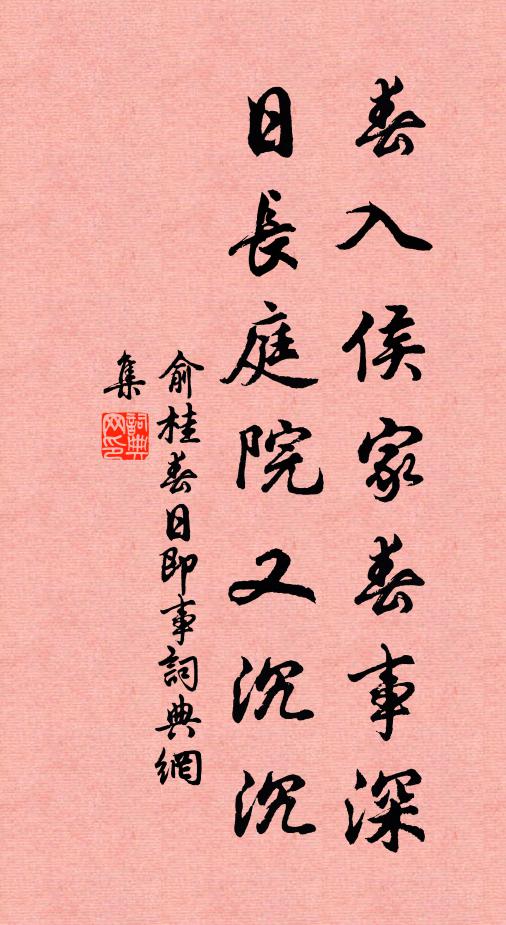 春入侯家春事深
日長庭院又沉沉
俞桂春日即事詞典網
集
詞典
网印